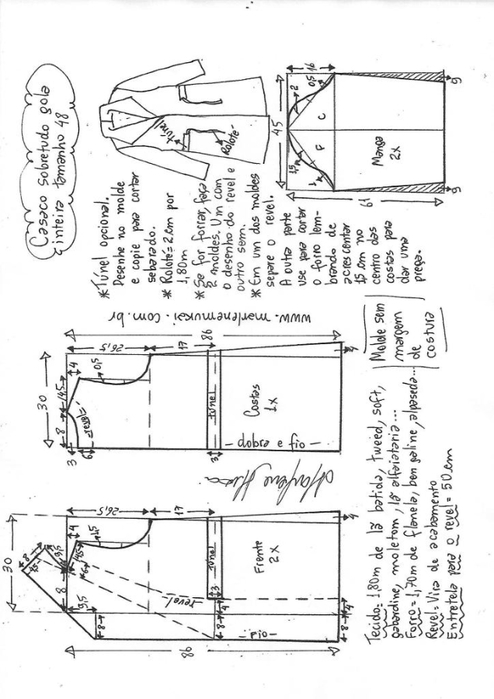 Casaco Sobretudo gola
inteira tamanho 48
Túnel
Rolotê
*Túnel opcional.
Desenhe no molde
e copie para cortar
separado.
*Rolotê = 2cm por
1,80m.
*Se for forrar, faça
2 moldes. Um com
o desenho do revel e
outro sem.
*Em um dos moldes
separe o revel.
A outra parte
use para cortar
o forro lem-
brando de
acrescentar
15 cm no
centro das
costas para
dar uma
prega.
16
0,5
2
45
C
F
1,5
Manga
2x
61
9
9
www.marlenemukai.com.br
30
26,5
17
86
4
14,5
0,5
8
3
6
revel
túnel
3
Costas
1x
fio e dobra
Marlene Mukai
30
26,5
17
8
9,5
4
8
túnel
3
4
revel
Frente
2x
fio
8
8
4
86
Molde sem
margem
de
costura
Tecido: 1,80m de lã batida, tweed, soft,
gabardine, moletom, lã alfaiataria...
Forro = 1,70m de flanela, bengaline, alpaseda...
Revel = Vira de acabamento
Entretela para o revel = 50cm